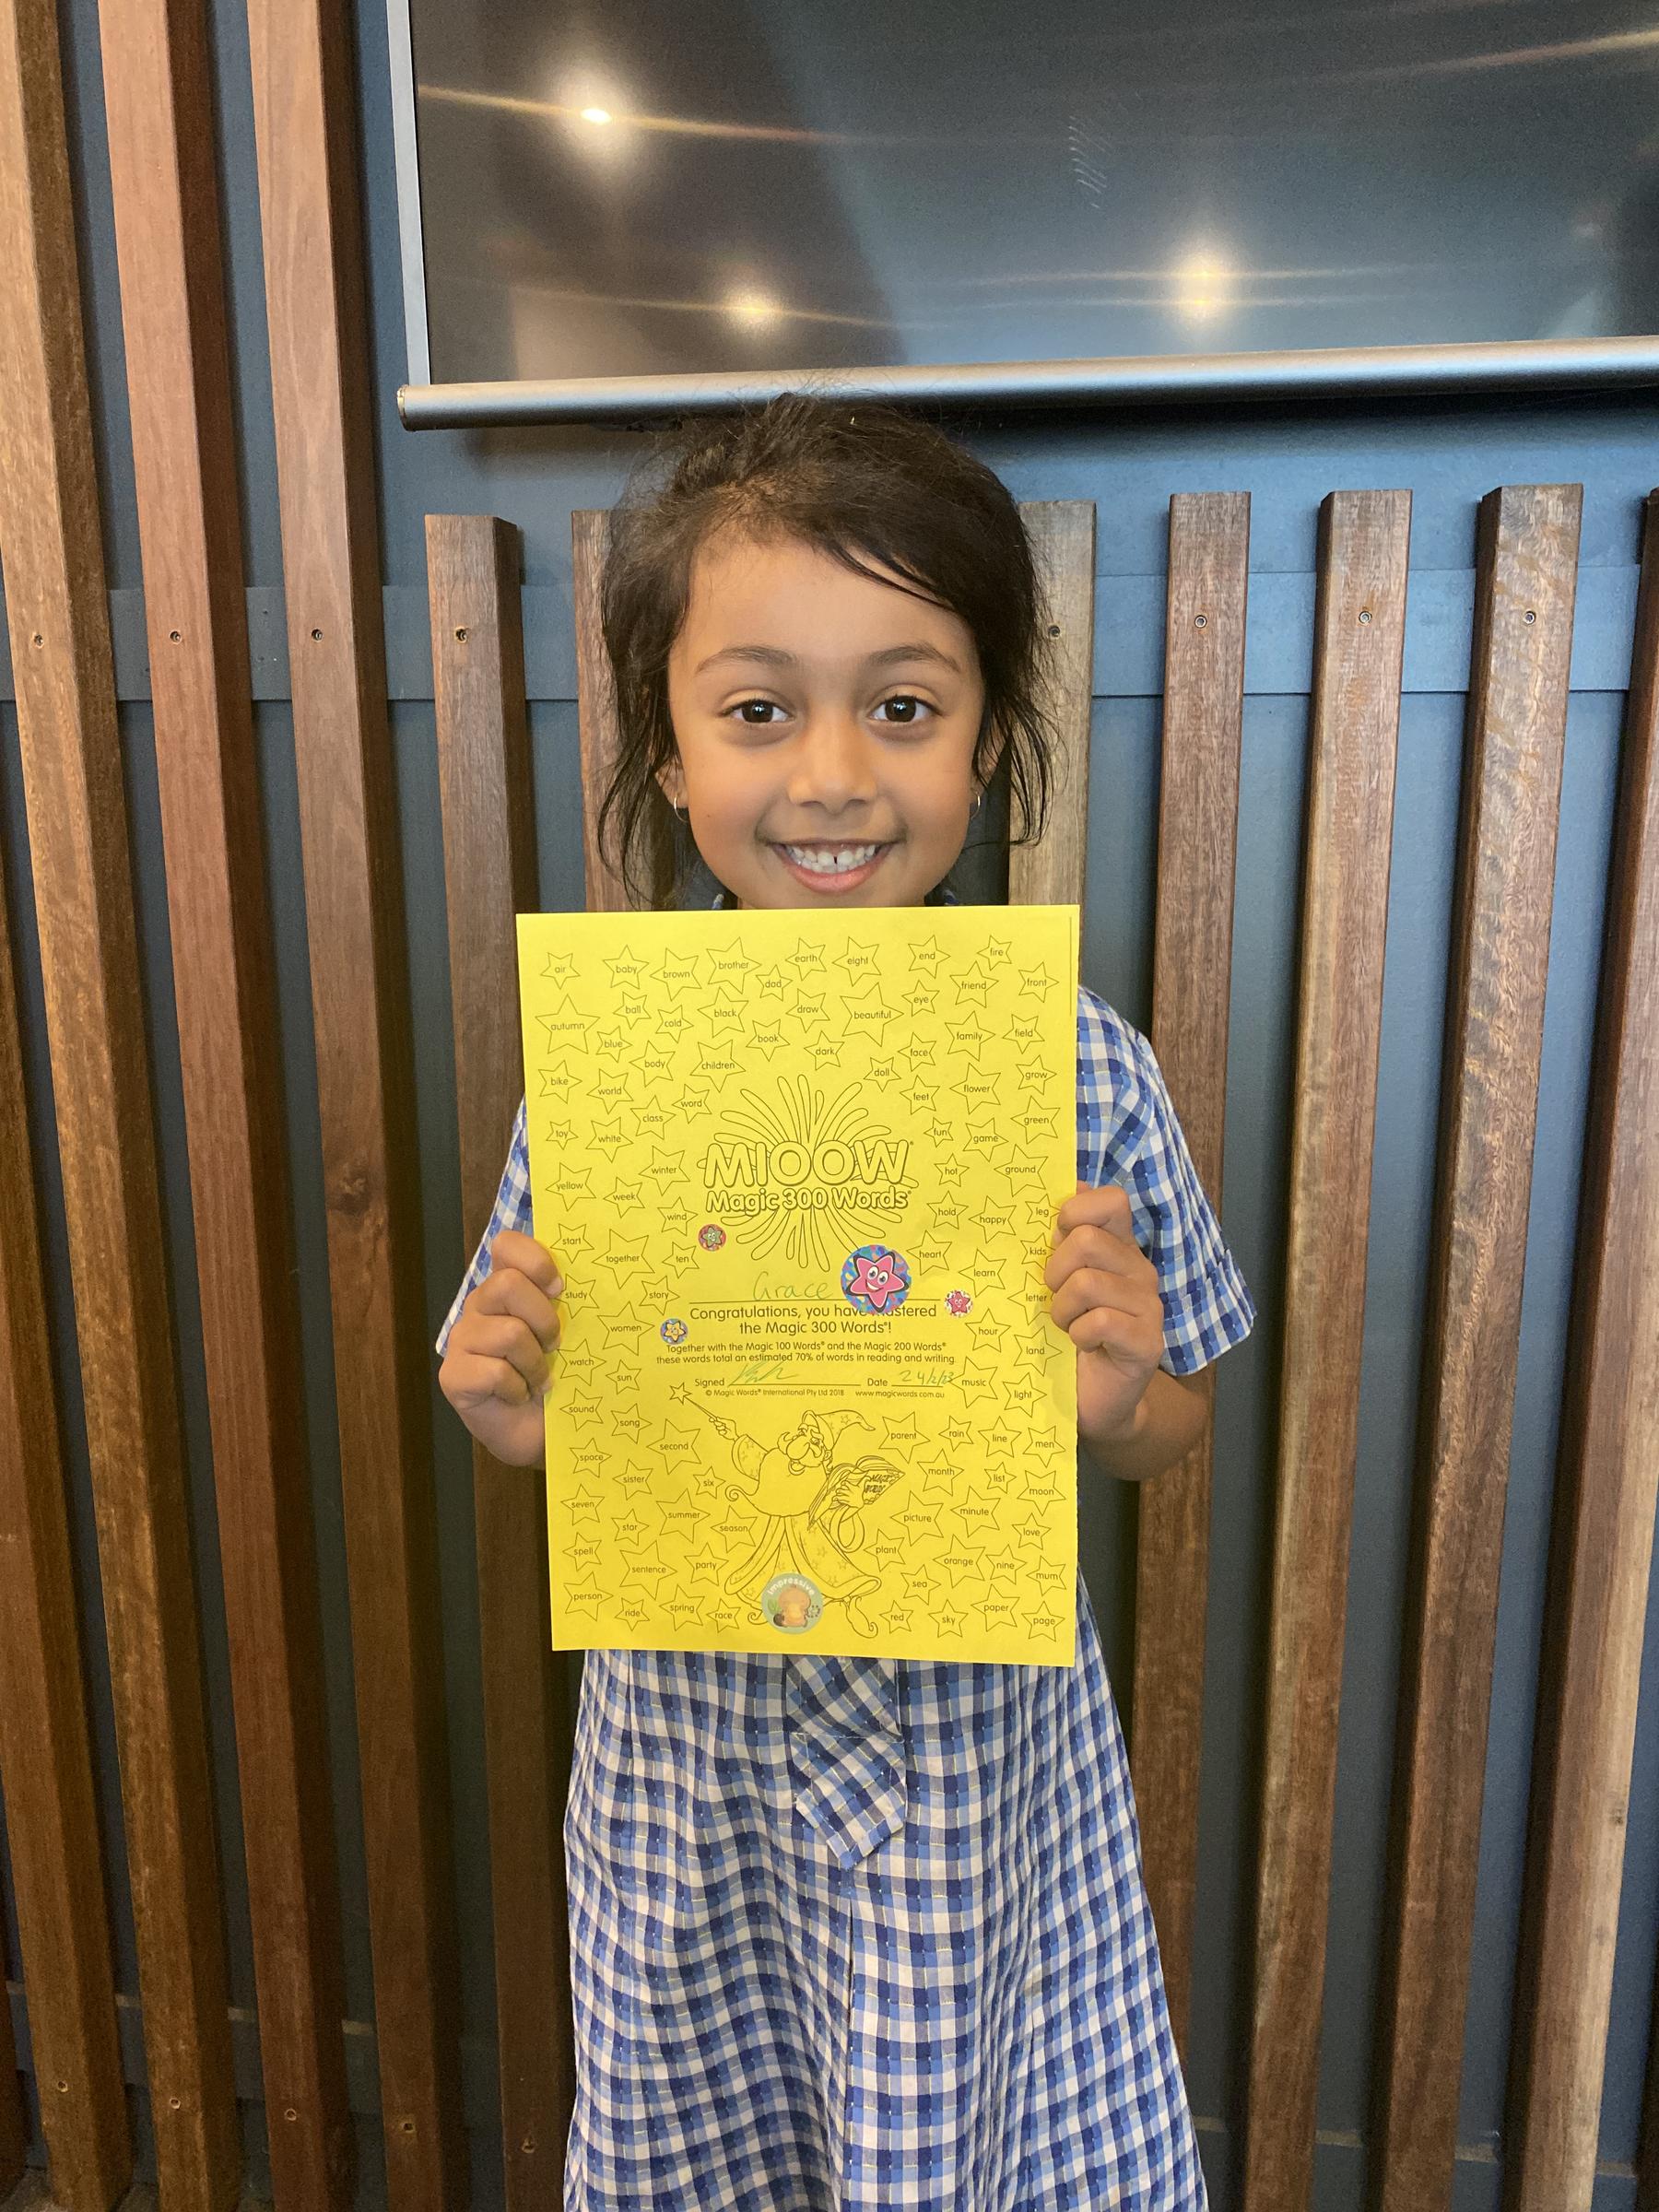 air baby brown brother dad earth eight end friend fire front
autumn ball blue cold black book draw beautiful eye family field
bike body children dark doll face grow
world word feet flower
toy white class fun game green
yellow winter hot ground
week wind hold happy leg
MIOOW®
Magic 300 Words®
start together ten heart learn kids
study story letter
Grace
Congratulations, you have mastered
the Magic 300 Words®!
women hour land
Together with the Magic 100 Words® and the Magic 200 Words®
these words total an estimated 70% of words in reading and writing
watch sun music light
Signed Date 24/2/23
© Magic Words® International Pty Ltd 2018 www.magicwords.com.au
sound song second parent rain line men
MAGIC WORDS
space sister six month list moon
seven star summer season picture minute love
spell sentence party plant orange nine mum
person ride spring race sea red sky paper page
impressive